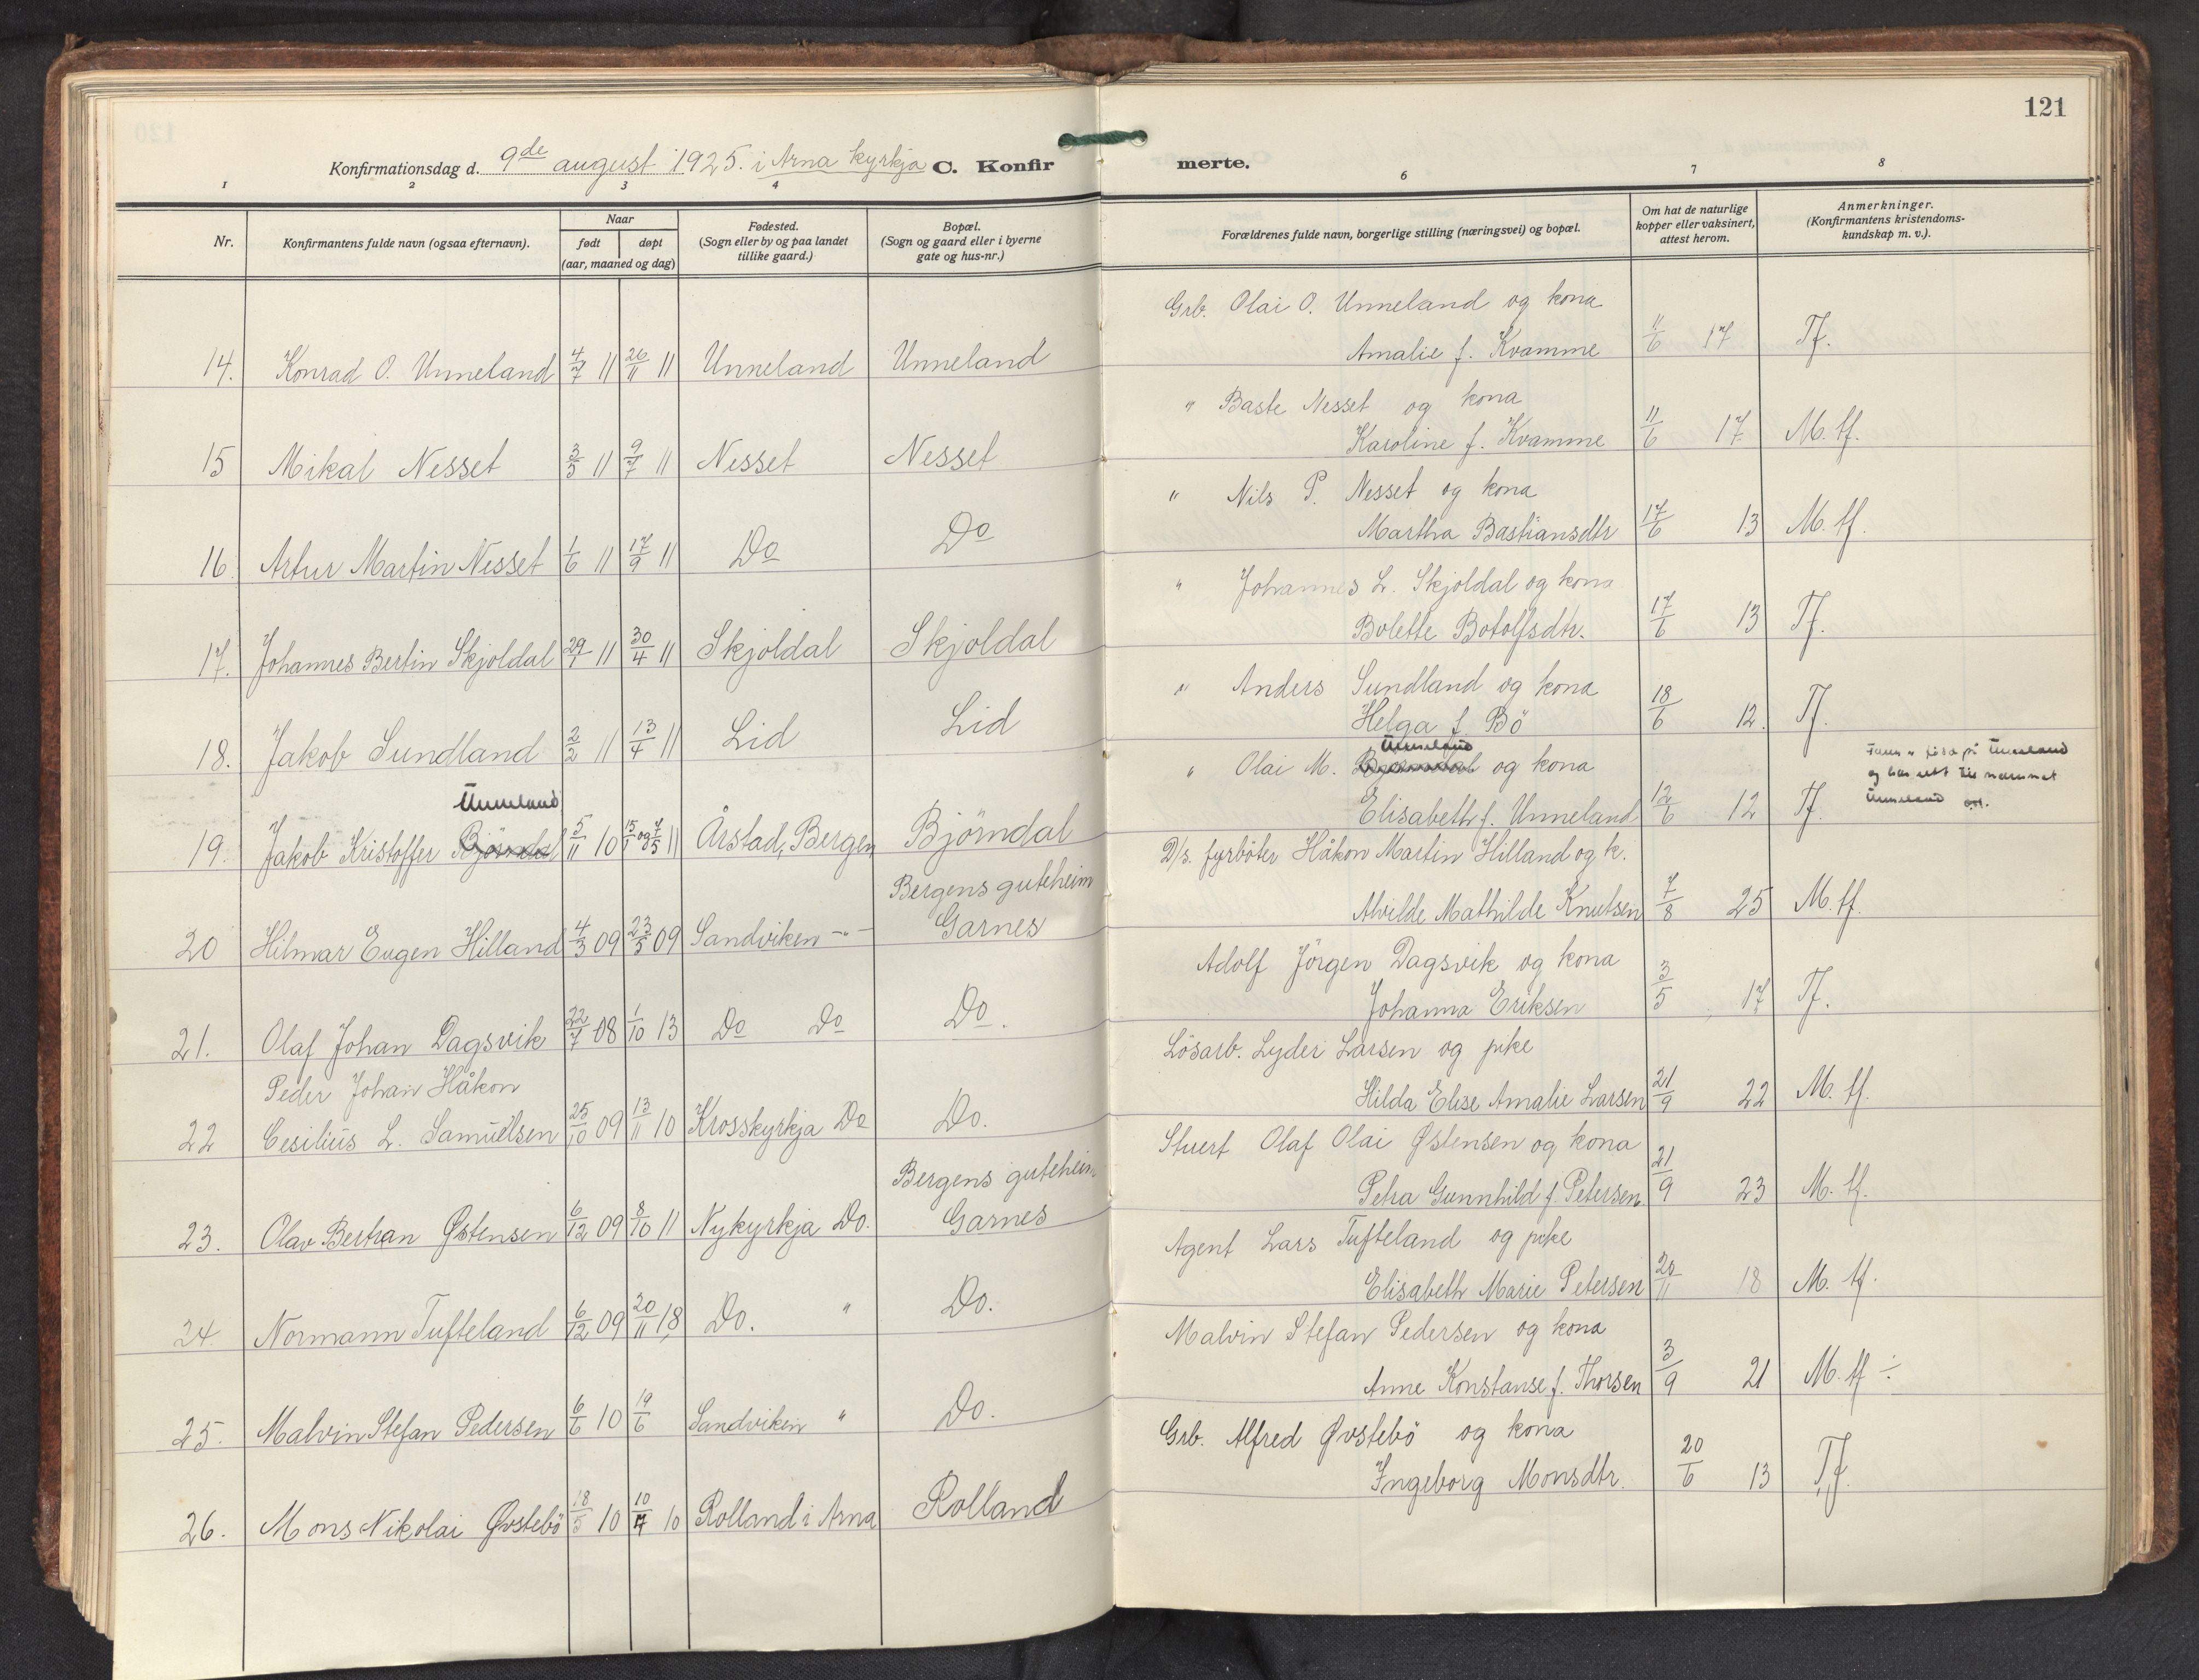 121
Konfirmationsdag d. 9de august 1925. i Arna kyrkja C. Konfirmerte.
1 2 3 4 6 7 8
Nr.
Konfirmantens fulde navn (ogsaa efternavn).
Naar
født døpt
(aar, maaned og dag)
Fødested.
(Sogn eller by og paa landet
tillike gaard.)
Bopæl.
(Sogn og gaard eller i byerne
gate og hus-nr.)
Forældrenes fulde navn, borgerlige stilling (næringsvei) og bopæl.
Om hat de naturlige
kopper eller vaksinert,
attest herom.
Anmerkninger.
(Konfirmantens kristendoms-
kundskap m. v.).
Grb. Olai O. Unneland og kona
14. Konrad O. Unneland 4/7 11 26/11 11 Unneland Unneland Amalie f. Kvamme 11/6 17 Tf.
" Baste Nesset og kona
15 Mikal Nesset 3/5 11 9/7 11 Nesset Nesset Karoline f. Kvamme 11/6 17 M. tf.
" Nils P. Nesset og kona
16. Artur Martin Nesset 1/6 11 17/9 11 Do Do Martha Bastiansdtr 17/6 13 M. tf.
" Johannes L. Skjoldal og kona
17. Johannes Bertin Skjoldal 29/1 11 30/4 11 Skjoldal Skjoldal Bolette Botolfsdtr. 17/6 13 Tf.
" Anders Sundland og kona
18. Jakob Sundland 2/2 11 13/4 11 Lid Lid Helga f. Bö 18/6 12. Tf.
Unneland
" Olai M. Björndal og kona
Unneland
19. Jakob Kristoffer Björndal 5/11 10 15/1 og 7/5 11 Årstad, Bergen Björndal Elisabeth f. Unneland 12/6 12 Tf.
på Unneland
og namnet
Unneland
D/s. fyrböter Håkon Martin Hilland og k.
Bergens guteheim
20 Hilmar Eugen Hilland 4/3 09 23/5 09 Sandviken -"- Garnes Alvilde Mathilde Knutsen 7/8 25 M. tf.
Adolf Jörgen Dagsvik og kona
21. Olaf Johan Dagsvik 22/7 08 1/10 13 Do Do Do. Johanna Eriksen 3/5 17 Tf.
Lösarb. Lyder Larsen og pike
Peder Johan Håkon
22 Cesilius L. Samuelsen 25/10 09 13/11 10 Krosskyrkja Do Do. Hilda Elise Amalie Larsen 21/9 22 M. tf.
Stuert Olaf Olai Østensen og kona
Bergens guteheim
23. Olav Bertran Østensen 6/12 09 8/10 11 Nykyrkja Do. Garnes Petra Gunnhild f. Petersen 21/9 23 M. tf.
Agent Lars Tufteland og pike
24. Normann Tufteland 6/12 09 20/11 18 Do. " Do. Elisabeth Marie Petersen 20/11 18 M. tf.
Malvin Stefan Pedersen og kona
25. Malvin Stefan Pedersen 6/6 10 19/6 Sandviken " Do. Anne Konstanse f. Thorsen 3/9 21 M. tf ÷
Grb. Alfred Øvstebö og kona
26. Mons Nikolai Øvstebö 18/5 10 10/7 10 Rolland i Arna Rolland Ingeborg Monsdtr. 20/6 13 Tf.